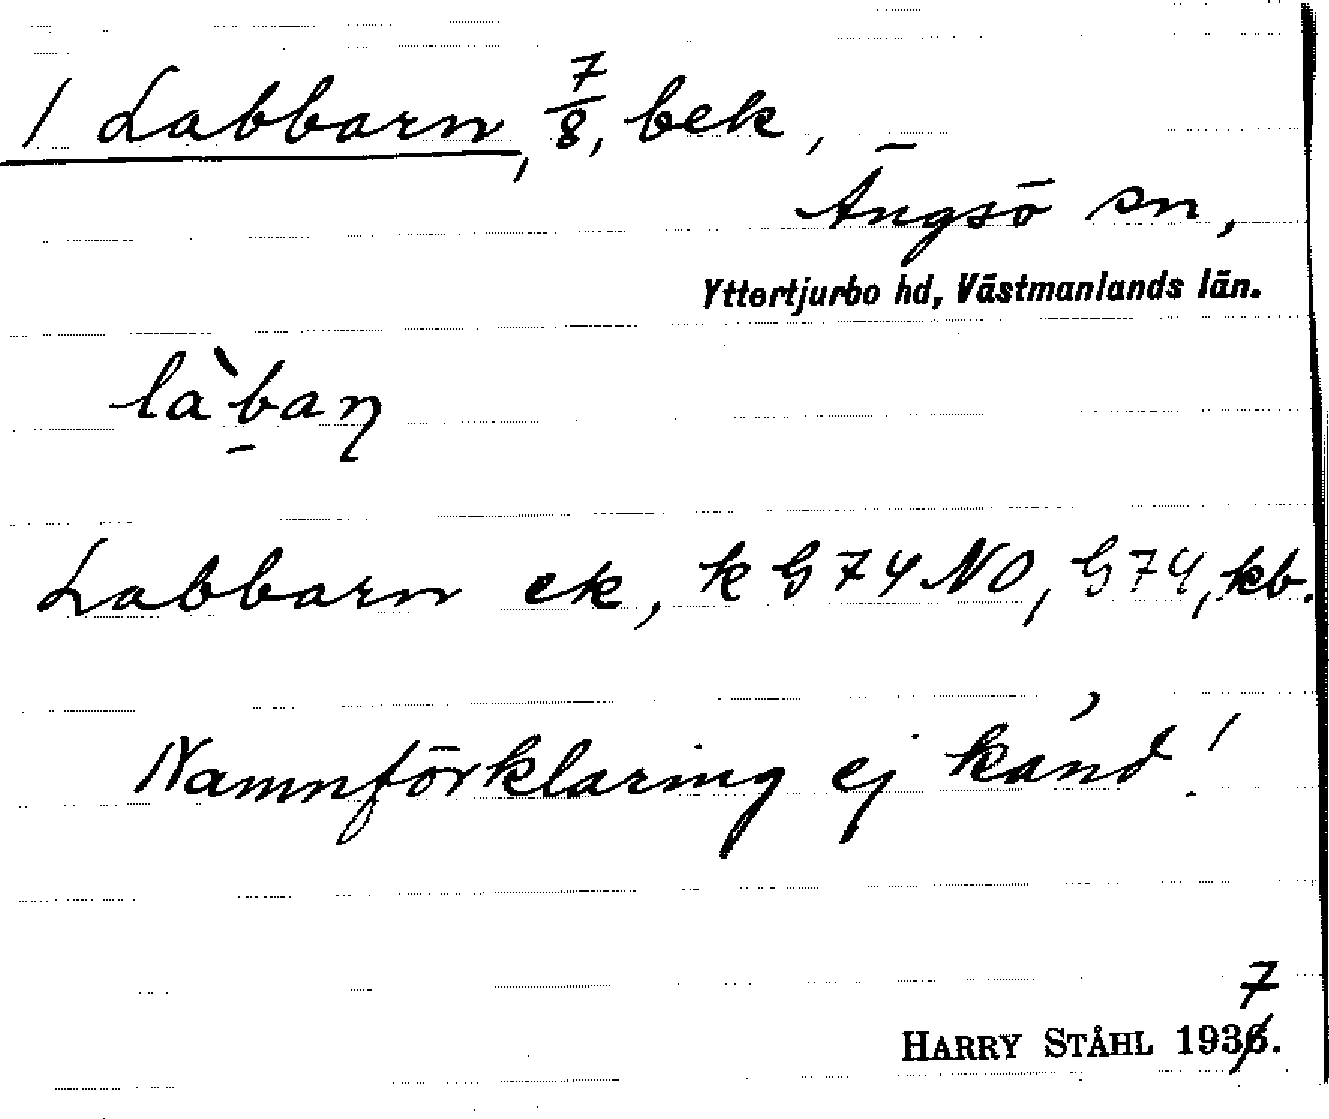 1 Labbarn, 7/8, bek,
Ängsö sn,
Yttertjurbo hd, Västmanlands län.
là`baṉ
Labbarn ek, k G 74 NO, G 74, kb.
Namnförklaring ej känd!
7
HARRY STÅHL 1936.